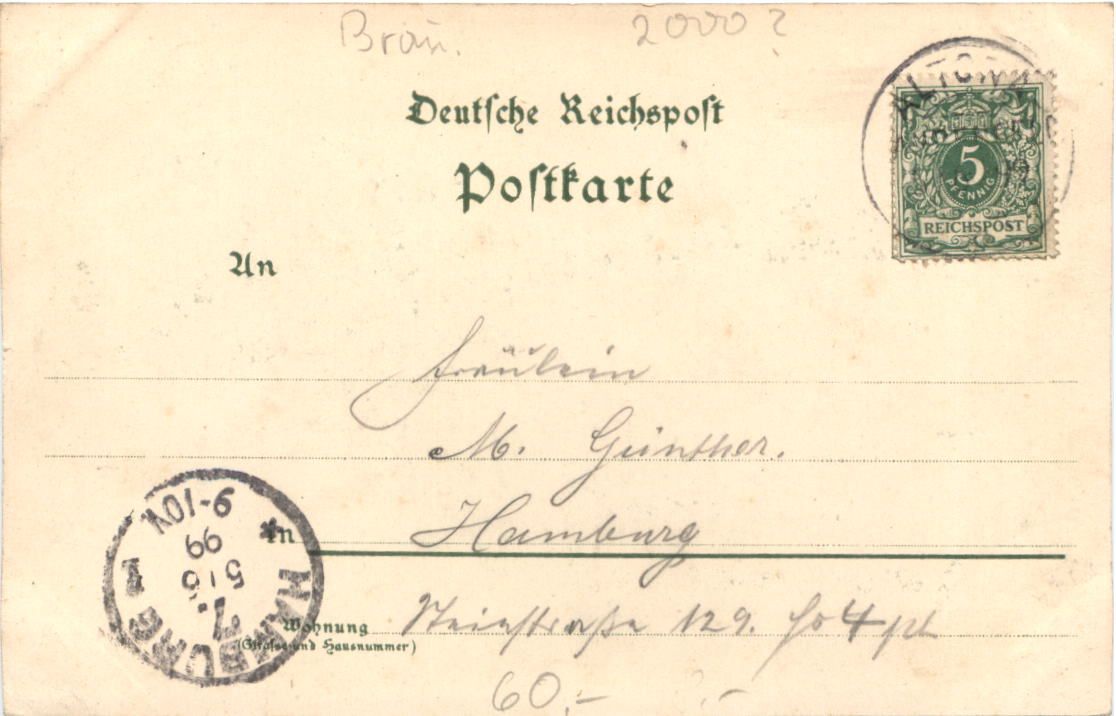 Bräu. 2000?
Deutsche Reichspost
Postkarte
ALTONA
5
PFENNIG
REICHSPOST
An
Fräulein
M. Günther.
in Hamburg
Wohnung Steinstraße 129.
(Straße und Hausnummer)
* HAMBURG 1
5
99
9-10V
60,- ?-